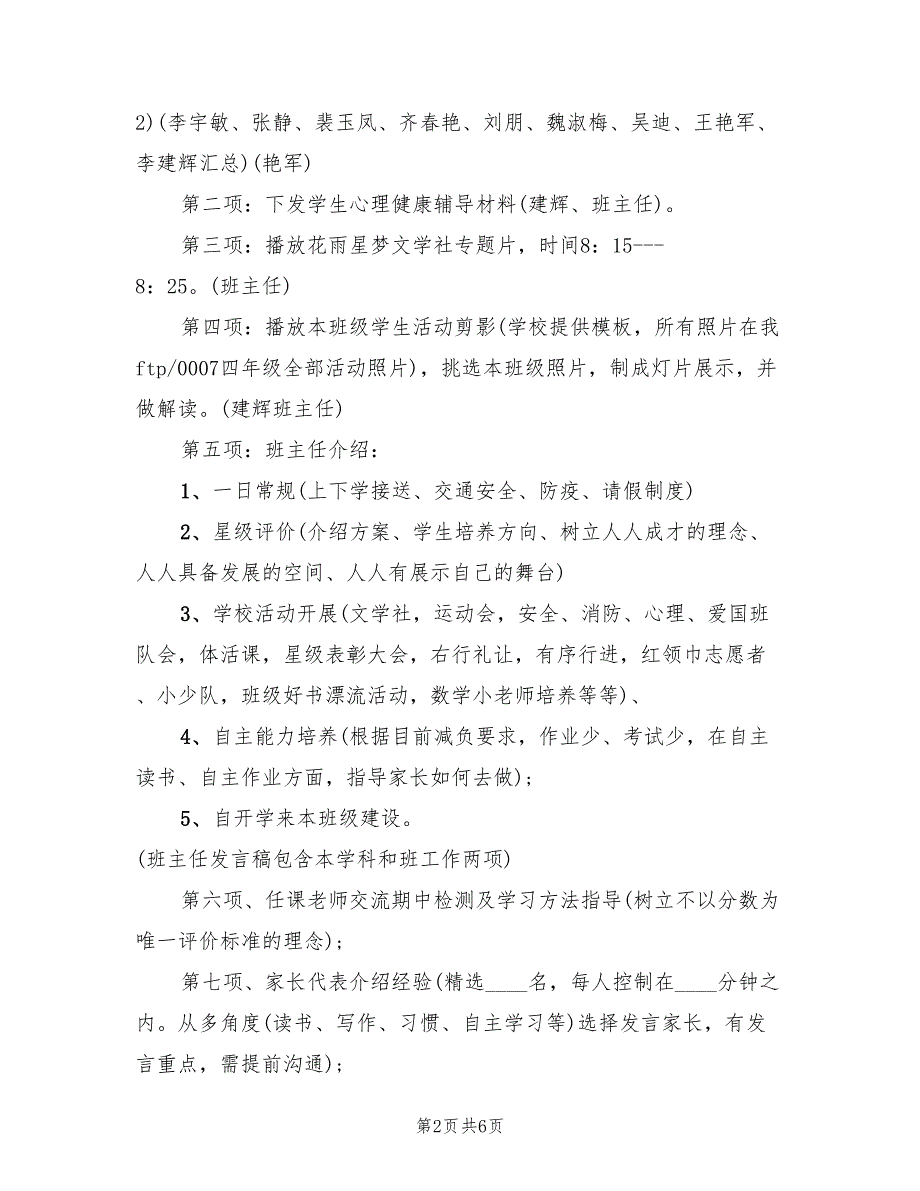 2)(李宇敏、张静、裴玉凤、齐春艳、刘朋、魏淑梅、吴迪、王艳军、
李建辉汇总)(艳军)
第二项：下发学生心理健康辅导材料(建辉、班主任)。
第三项：播放花雨星梦文学社专题片，时间8：15---
8：25。(班主任)
第四项：播放本班级学生活动剪影(学校提供模板，所有照片在我
ftp/0007四年级全部活动照片)，挑选本班级照片，制成灯片展示，并
做解读。(建辉班主任)
第五项：班主任介绍：
1、一日常规(上下学接送、交通安全、防疫、请假制度)
2、星级评价(介绍方案、学生培养方向、树立人人成才的理念、
人人具备发展的空间、人人有展示自己的舞台)
3、学校活动开展(文学社，运动会，安全、消防、心理、爱国班
队会，体活课，星级表彰大会，右行礼让，有序行进，红领巾志愿者
、小少队，班级好书漂流活动，数学小老师培养等等)、
4、自主能力培养(根据目前减负要求，作业少、考试少，在自主
读书、自主作业方面，指导家长如何去做);
5、自开学来本班级建设。
(班主任发言稿包含本学科和班工作两项)
第六项、任课老师交流期中检测及学习方法指导(树立不以分数为
唯一评价标准的理念);
第七项、家长代表介绍经验(精选____名，每人控制在____分钟之
内。从多角度(读书、写作、习惯、自主学习等)选择发言家长，有发
言重点，需提前沟通);
第2页 共6页